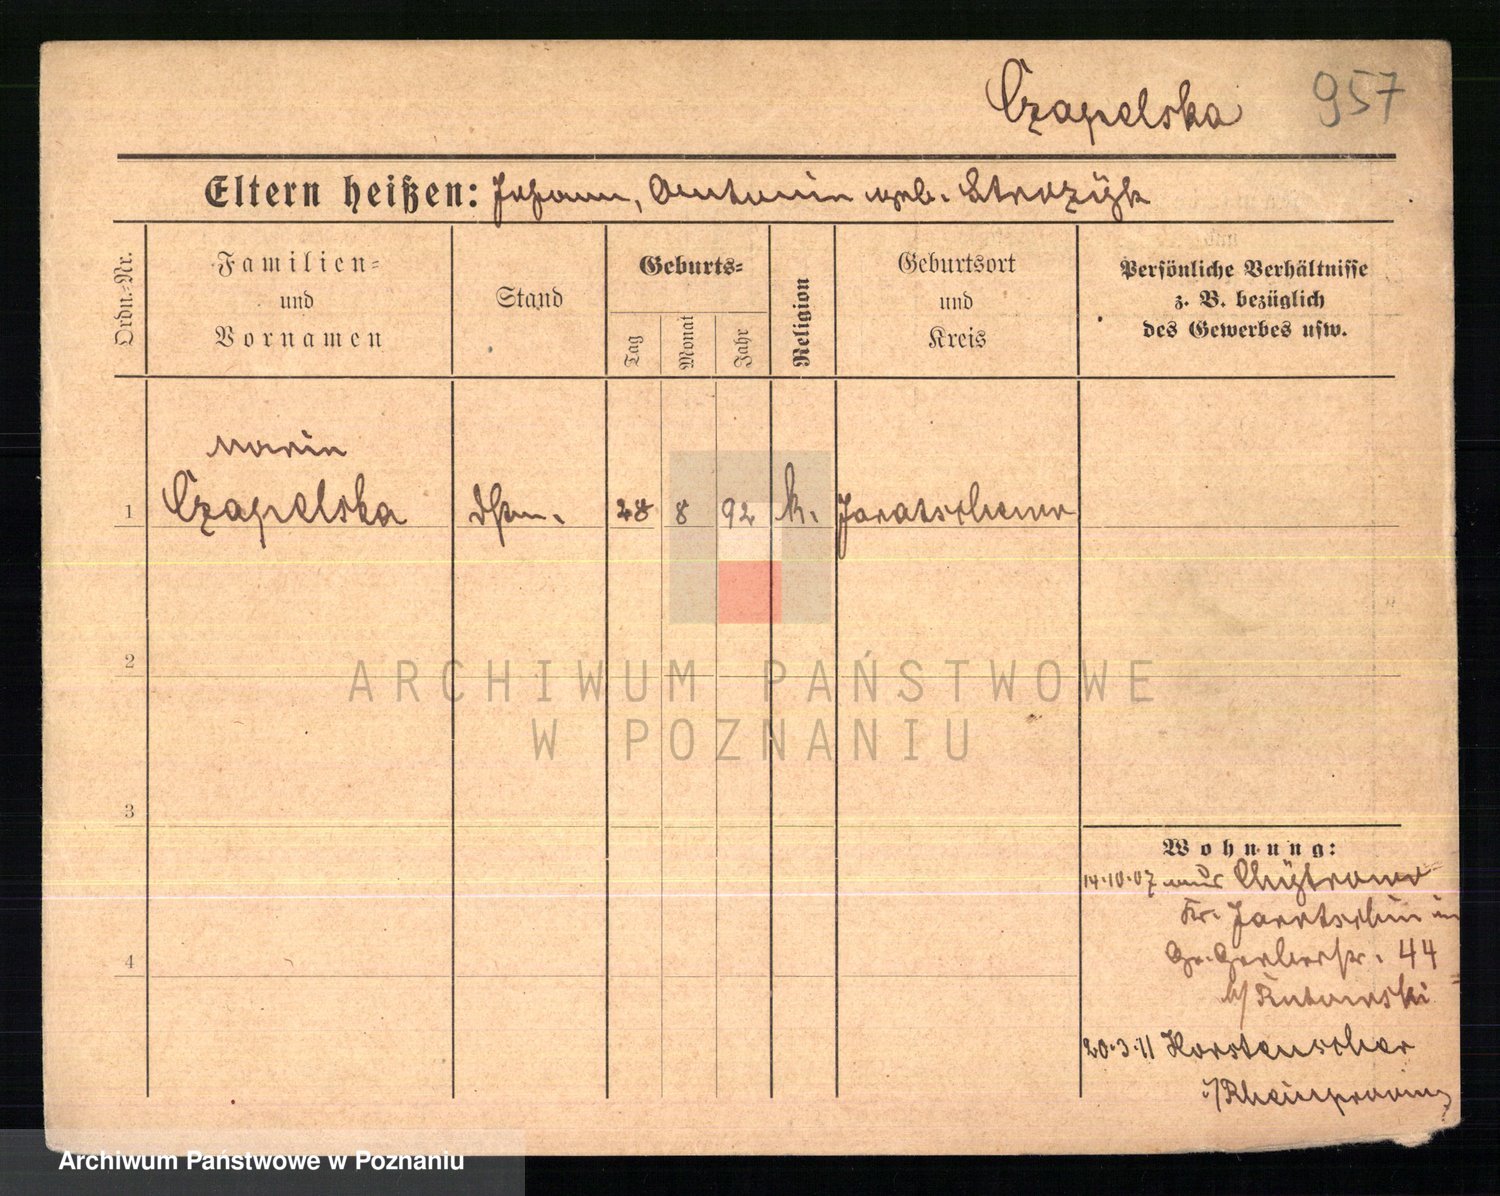 Czapelska 957
Eltern heißen: Johann, Antonie geb. Strozÿk
Ordn.-Nr.
Familien-
und
Vornamen
Stand
Geburts-
Tag
Monat
Jahr
Religion
Geburtsort
und
Kreis
Persönliche Verhältnisse
z. B. bezüglich
des Gewerbes usw.
Marie
1 Czapelska 28 8 92 k.
2
3
4
Wohnung:
14.10.07 aus
Kr. Jarotschin in
Gr. Gerberstr. 44
b/
20.3.11
i/Rheinprovinz
ARCHIWUM PAŃSTWOWE
W POZNANIU
Archiwum Państwowe w Poznaniu